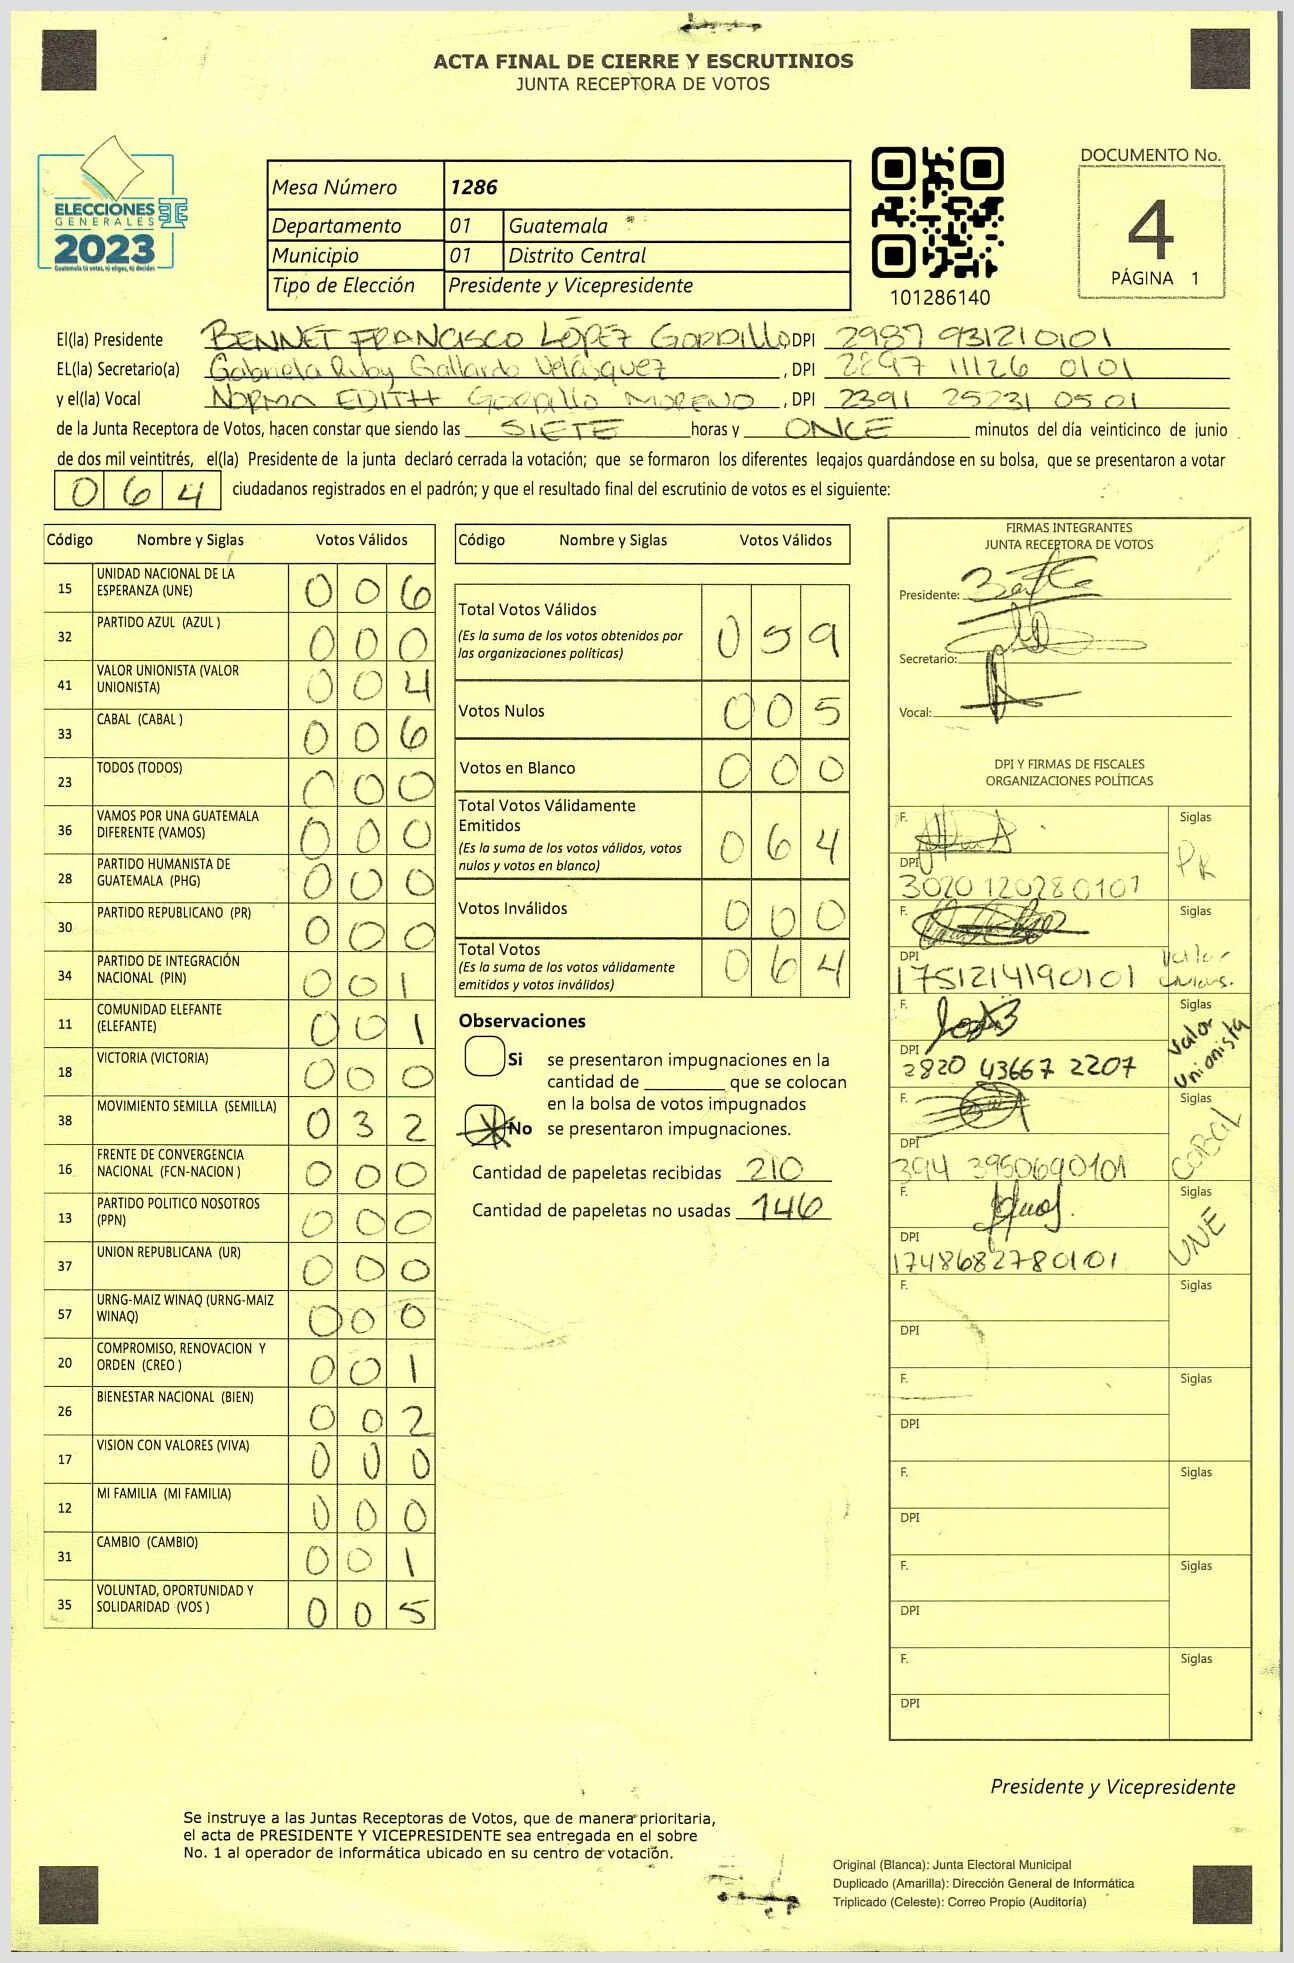 ACTA FINAL DE CIERRE Y ESCRUTINIOS
JUNTA RECEPTORA DE VOTOS
ELECCIONES
GENERALES
2023
Guatemala tú votas, tú eliges, tú decides
Mesa Número 1286
Departamento 01 Guatemala
Municipio 01 Distrito Central
Tipo de Elección Presidente y Vicepresidente
101286140
DOCUMENTO No.
4
PÁGINA 1
El(la) Presidente BENNET FRANCISCO LÓPEZ GORDILLO, DPI 2987 93121 0101
EL(la) Secretario(a) Gabriela Ruby Gallardo Velásquez, DPI 2897 11126 0101
y el(la) Vocal NORMA EDITH GORDILLO MORENO, DPI 2391 25231 0501
de la Junta Receptora de Votos, hacen constar que siendo las SIETE horas y ONCE minutos del día veinticinco de junio
de dos mil veintitrés, el(la) Presidente de la junta declaró cerrada la votación; que se formaron los diferentes legajos guardándose en su bolsa, que se presentaron a votar
064 ciudadanos registrados en el padrón; y que el resultado final del escrutinio de votos es el siguiente:
Código Nombre y Siglas Votos Válidos
15 UNIDAD NACIONAL DE LA ESPERANZA (UNE) 006
32 PARTIDO AZUL (AZUL ) 000
41 VALOR UNIONISTA (VALOR UNIONISTA) 004
33 CABAL (CABAL ) 006
23 TODOS (TODOS) 000
36 VAMOS POR UNA GUATEMALA DIFERENTE (VAMOS) 000
28 PARTIDO HUMANISTA DE GUATEMALA (PHG) 000
30 PARTIDO REPUBLICANO (PR) 000
34 PARTIDO DE INTEGRACIÓN NACIONAL (PIN) 001
11 COMUNIDAD ELEFANTE (ELEFANTE) 001
18 VICTORIA (VICTORIA) 000
38 MOVIMIENTO SEMILLA (SEMILLA) 032
16 FRENTE DE CONVERGENCIA NACIONAL (FCN-NACION ) 000
13 PARTIDO POLITICO NOSOTROS (PPN) 000
37 UNION REPUBLICANA (UR) 000
57 URNG-MAIZ WINAQ (URNG-MAIZ WINAQ) 000
20 COMPROMISO, RENOVACION Y ORDEN (CREO ) 001
26 BIENESTAR NACIONAL (BIEN) 002
17 VISION CON VALORES (VIVA) 000
12 MI FAMILIA (MI FAMILIA) 000
31 CAMBIO (CAMBIO) 001
35 VOLUNTAD, OPORTUNIDAD Y SOLIDARIDAD (VOS ) 005
Código Nombre y Siglas Votos Válidos
Total Votos Válidos 059
(Es la suma de los votos obtenidos por
las organizaciones políticas)
Votos Nulos 005
Votos en Blanco 000
Total Votos Válidamente
Emitidos 064
(Es la suma de los votos válidos, votos
nulos y votos en blanco)
Votos Inválidos 000
Total Votos 064
(Es la suma de los votos válidamente
emitidos y votos inválidos)
Observaciones
Si se presentaron impugnaciones en la
cantidad de ________ que se colocan
en la bolsa de votos impugnados
No se presentaron impugnaciones.
Cantidad de papeletas recibidas 210
Cantidad de papeletas no usadas 146
FIRMAS INTEGRANTES
JUNTA RECEPTORA DE VOTOS
Presidente:
Secretario:
Vocal:
DPI Y FIRMAS DE FISCALES
ORGANIZACIONES POLÍTICAS
F. Siglas PR
DPI 3020 120280101
F. Siglas Valor
DPI 1751214190101
F. Siglas Valor Unionista
DPI 2820 43667 2207
F. Siglas CABAL
DPI 394 3950690101
F. Siglas UNE
DPI 1748682780101
F. Siglas
DPI
F. Siglas
DPI
F. Siglas
DPI
F. Siglas
DPI
F. Siglas
DPI
Presidente y Vicepresidente
Se instruye a las Juntas Receptoras de Votos, que de manera prioritaria,
el acta de PRESIDENTE Y VICEPRESIDENTE sea entregada en el sobre
No. 1 al operador de informática ubicado en su centro de votación.
Original (Blanca): Junta Electoral Municipal
Duplicado (Amarilla): Dirección General de Informática
Triplicado (Celeste): Correo Propio (Auditoría)